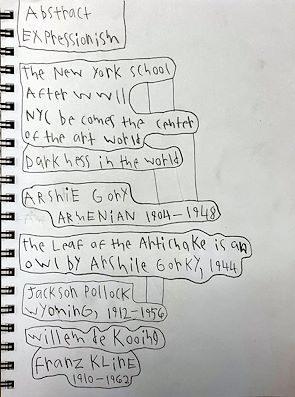 Abstract
Expressionism
the New York school
After WWII
NYC becomes the center
of the art world
Darkness in the world
Arshie Gory
Armenian 1904-1948
the Leaf of the Artichoke is an
owl by Arshile Gorky, 1944
Jackson Pollock
Wyoming, 1912-1956
Willem de Kooing
Franz Kline
1910-1962